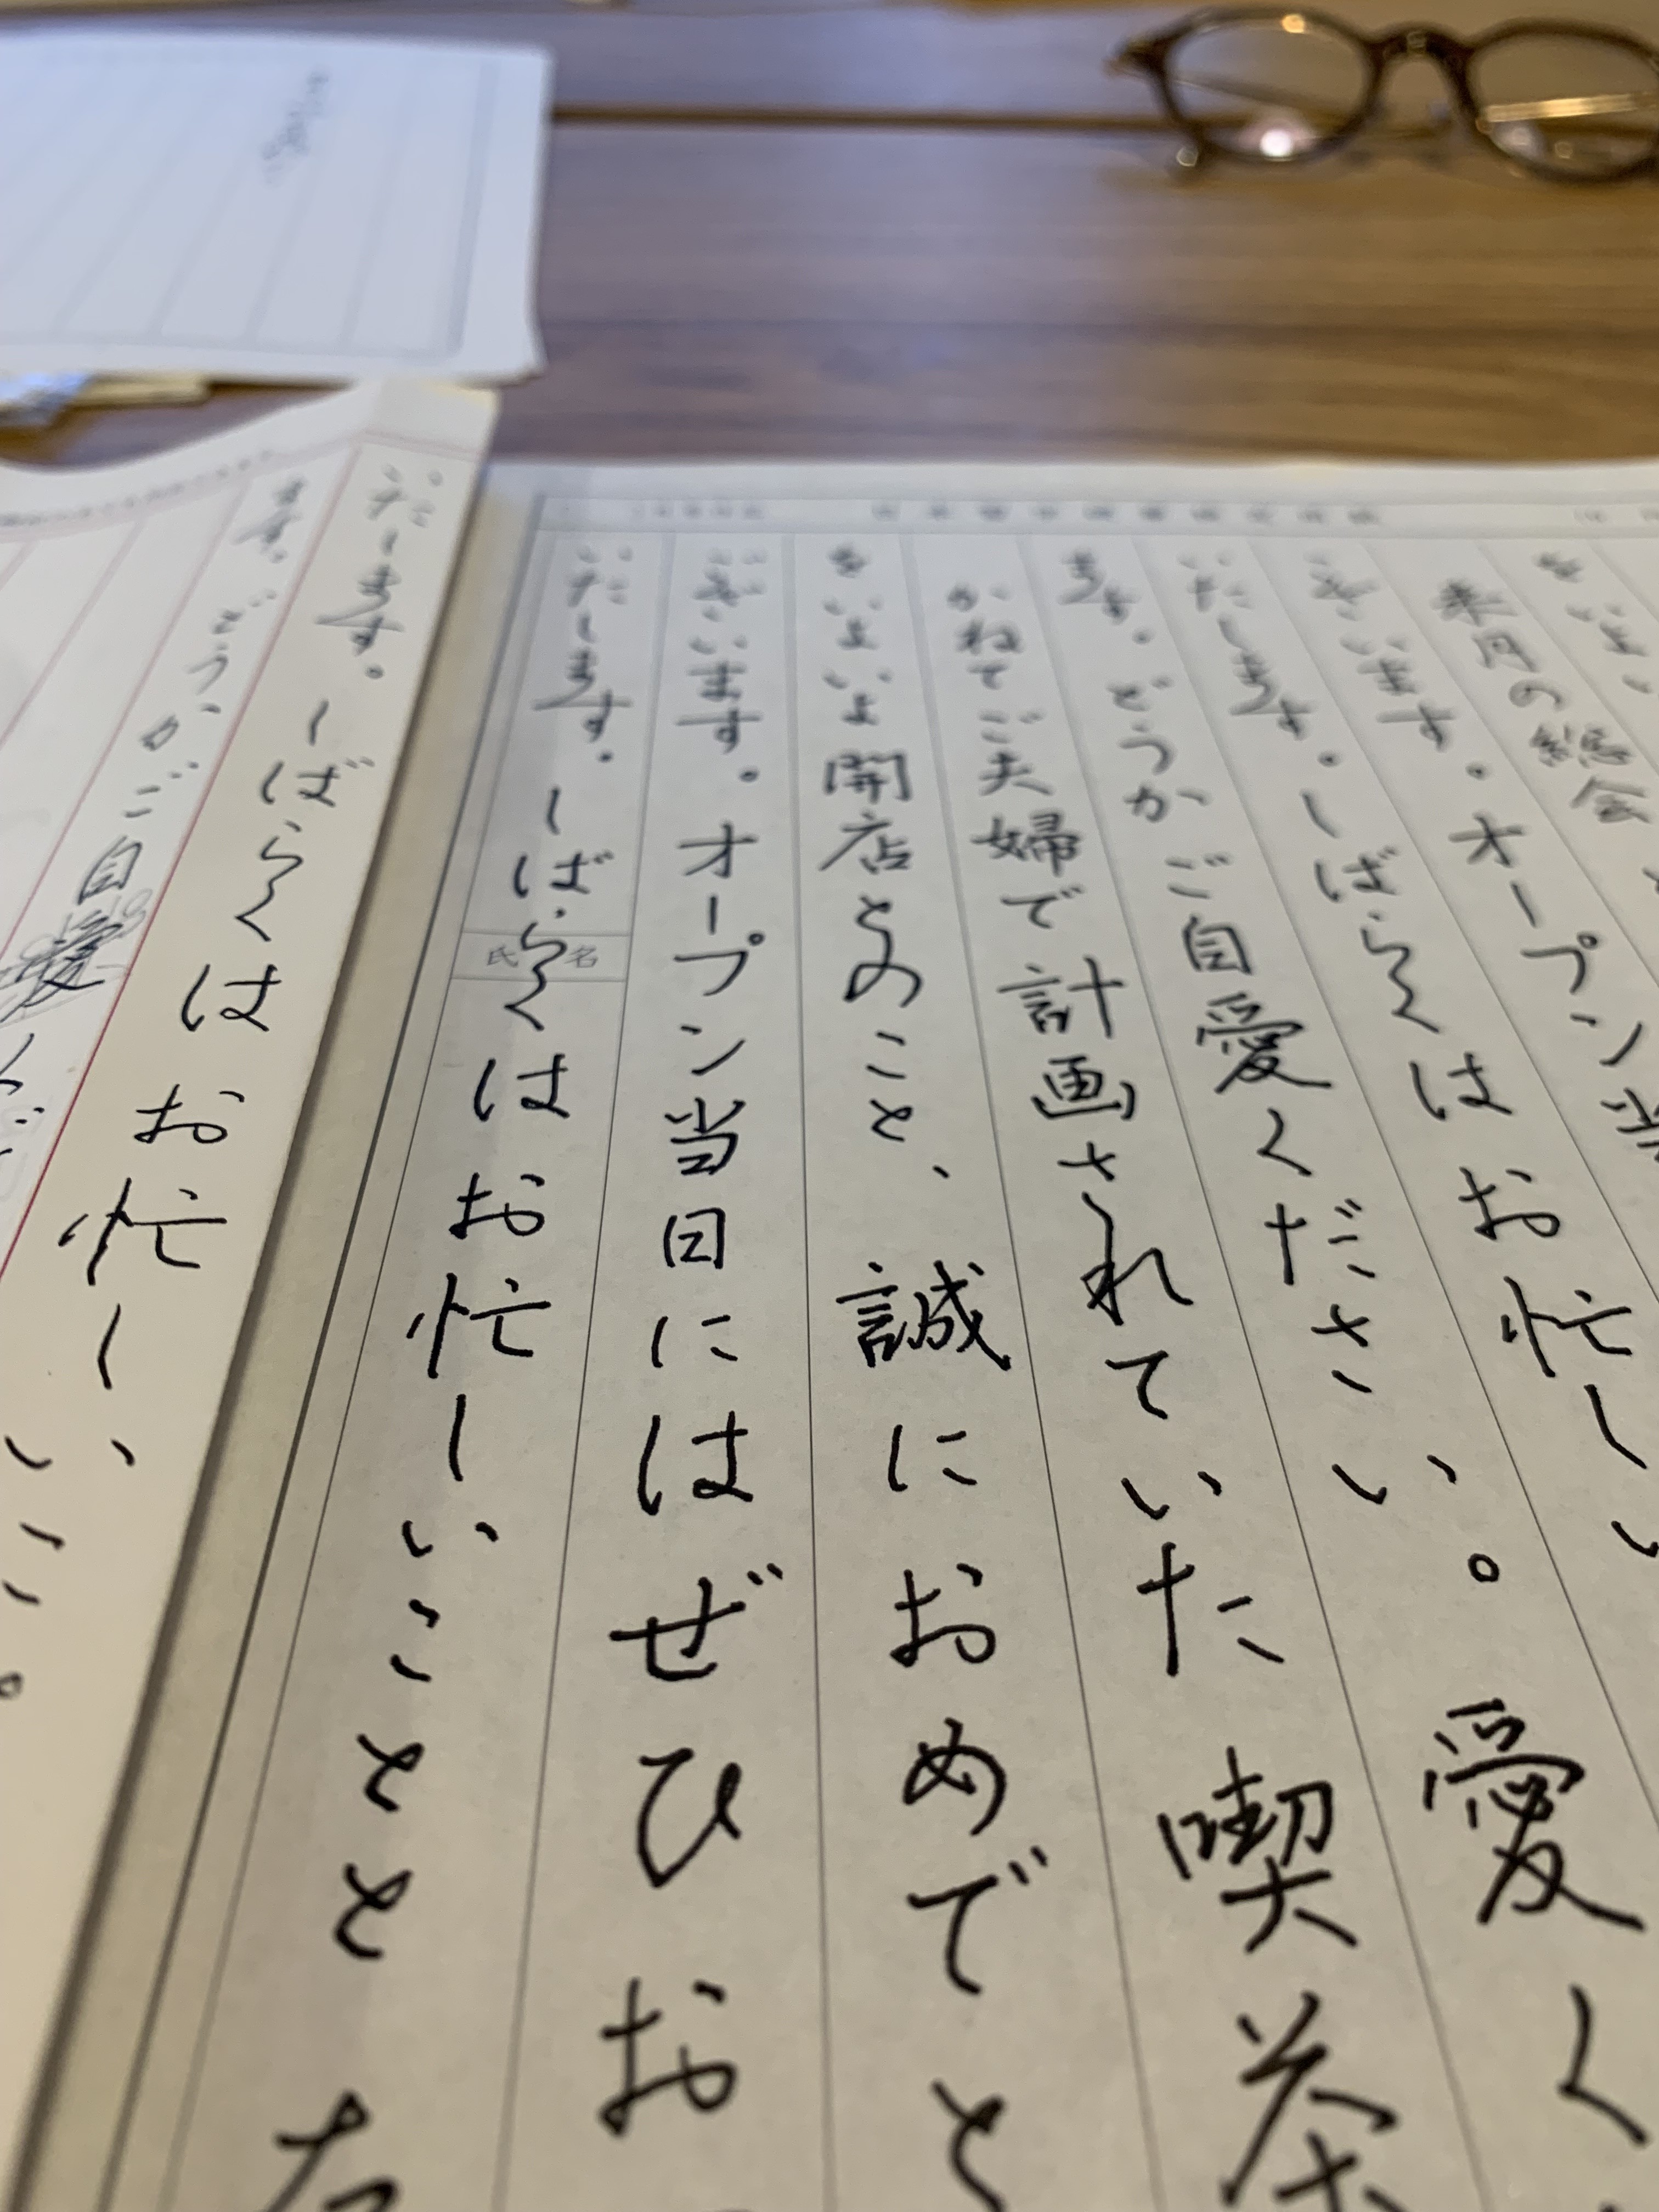 をいよい
来月の総会
ざいます。オープン当
いたします。しばらくはお忙しい
ます。どうかご自愛ください。愛く
かねてご夫婦で計画されていた喫茶
をいよいよ開店とのこと、誠におめでと
ざいます。オープン当日にはぜひお
いたします。しばらくはお忙しいことと
氏名
いたします。しばらくはお忙しい
ます。どうかご自愛